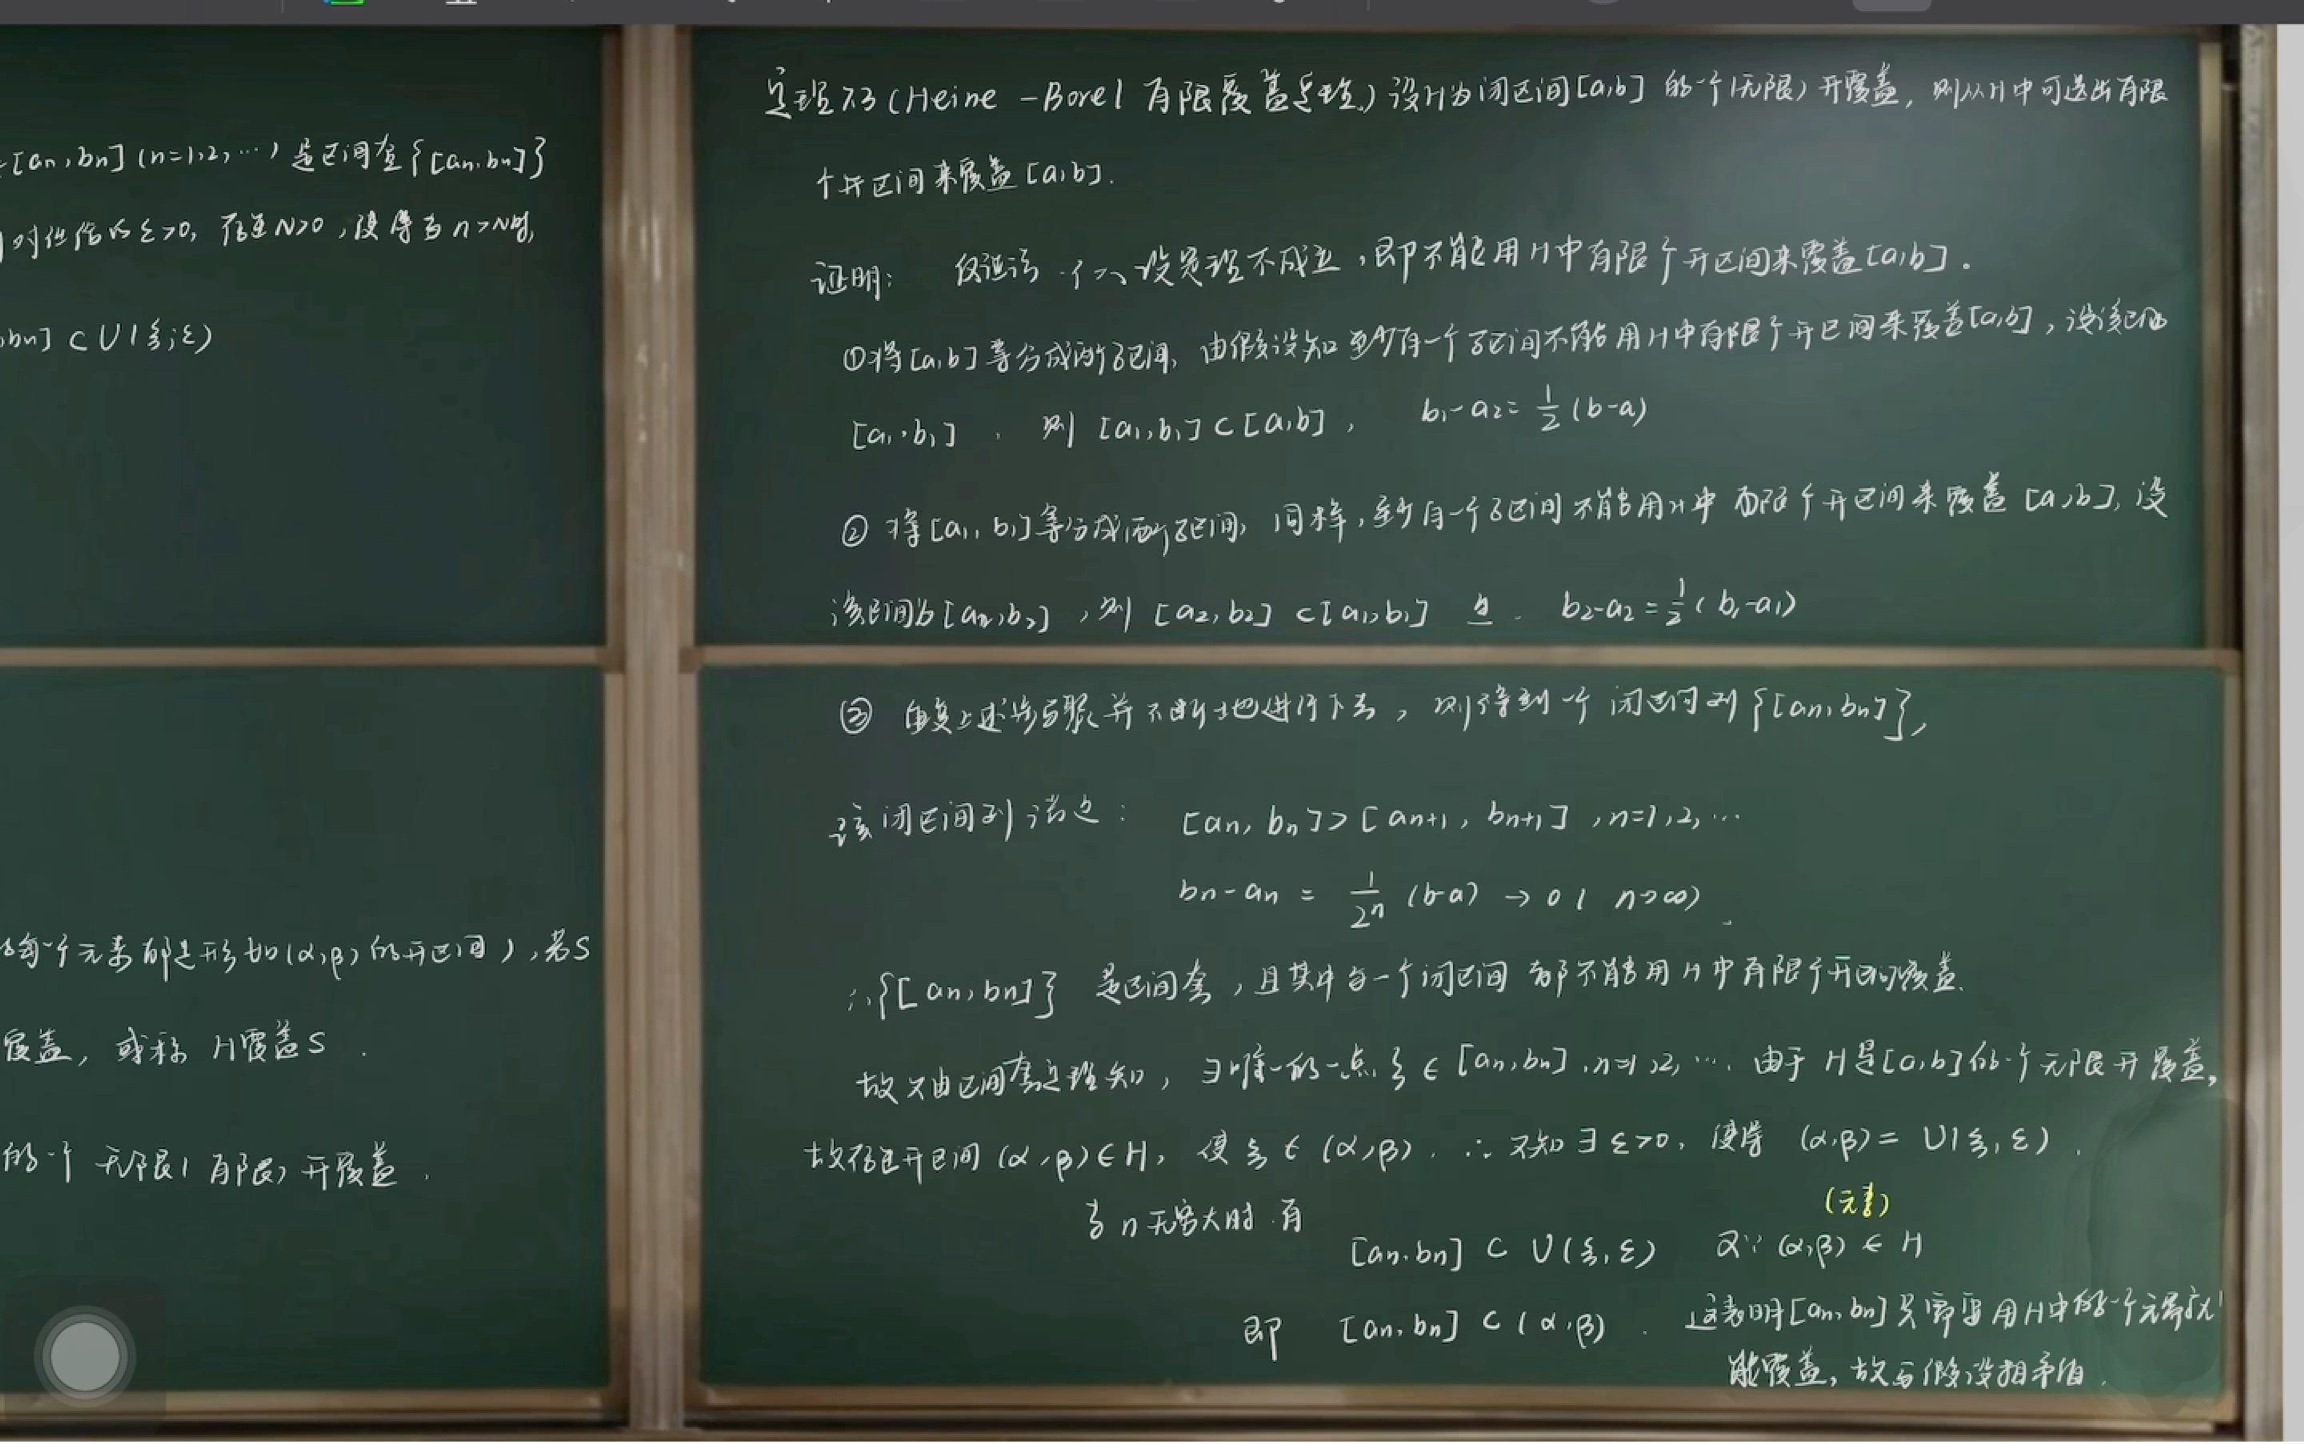 [an,bn] (n=1,2,…) 是区间套{[an,bn]}
对任给的ε>0, 存在N>0, 使得当n>N时,
bn] ⊂ U(ξ;ε)
每一个元素都是形如(α,β)的开区间), 若S
覆盖, 或称 H覆盖S.
的一个 无限(有限)开覆盖.
定理7.3 (Heine-Borel 有限覆盖定理) 设H为闭区间[a,b]的一个(无限)开覆盖, 则从H中可选出有限
个开区间来覆盖[a,b].
证明: 设定理不成立, 即不能用H中有限个开区间来覆盖[a,b].
①将[a,b]等分成两个子区间, 由假设知至少有一个子区间不能用H中有限个开区间来覆盖[a,b], 设该区间
[a₁,b₁], 则 [a₁,b₁]⊂[a,b], b₁-a₂=1/2(b-a)
② 将[a₁,b₁]等分成两个子区间, 同样, 至少有一个子区间不能用H中有限个开区间来覆盖[a,b], 设
该区间为[a₂,b₂], 则 [a₂,b₂]⊂[a₁,b₁] 且 b₂-a₂=1/2(b₁-a₁)
③ 重复上述步骤并不断地进行下去, 则得到一个闭区间列{[an,bn]},
该闭区间列满足: [an,bn]⊃[an+1,bn+1], n=1,2,…
bn-an = 1/2ⁿ (b-a) → 0 (n→∞)
∴{[an,bn]} 是区间套, 且其中每一个闭区间都不能用H中有限个开区间覆盖.
故又由区间套定理知, ∃唯一的一点ξ∈[an,bn], n=1,2,…. 由于H是[a,b]的一个无限开覆盖,
故存在开区间(α,β)∈H, 使ξ∈(α,β). ∴不知∃ε>0, 使得 (α,β)=U(ξ,ε).
当n无穷大时 有
(元素)
[an,bn]⊂U(ξ,ε) 又∵(α,β)∈H
即 [an,bn]⊂(α,β). 这表明[an,bn]只需要用H中的一个元素就
能覆盖, 故与假设相矛盾.